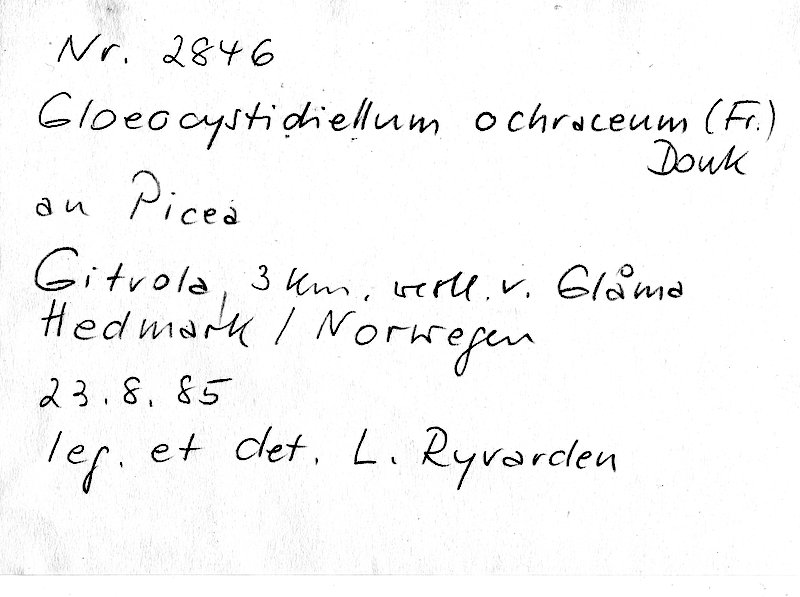 Nr. 2846
Gloeocystidiellum ochraceum (Fr.)
Donk
an Picea
Gitvola, 3 km. westl. v. Glåma
Hedmark / Norwegen
23.8.85
leg. et det. L. Ryvarden